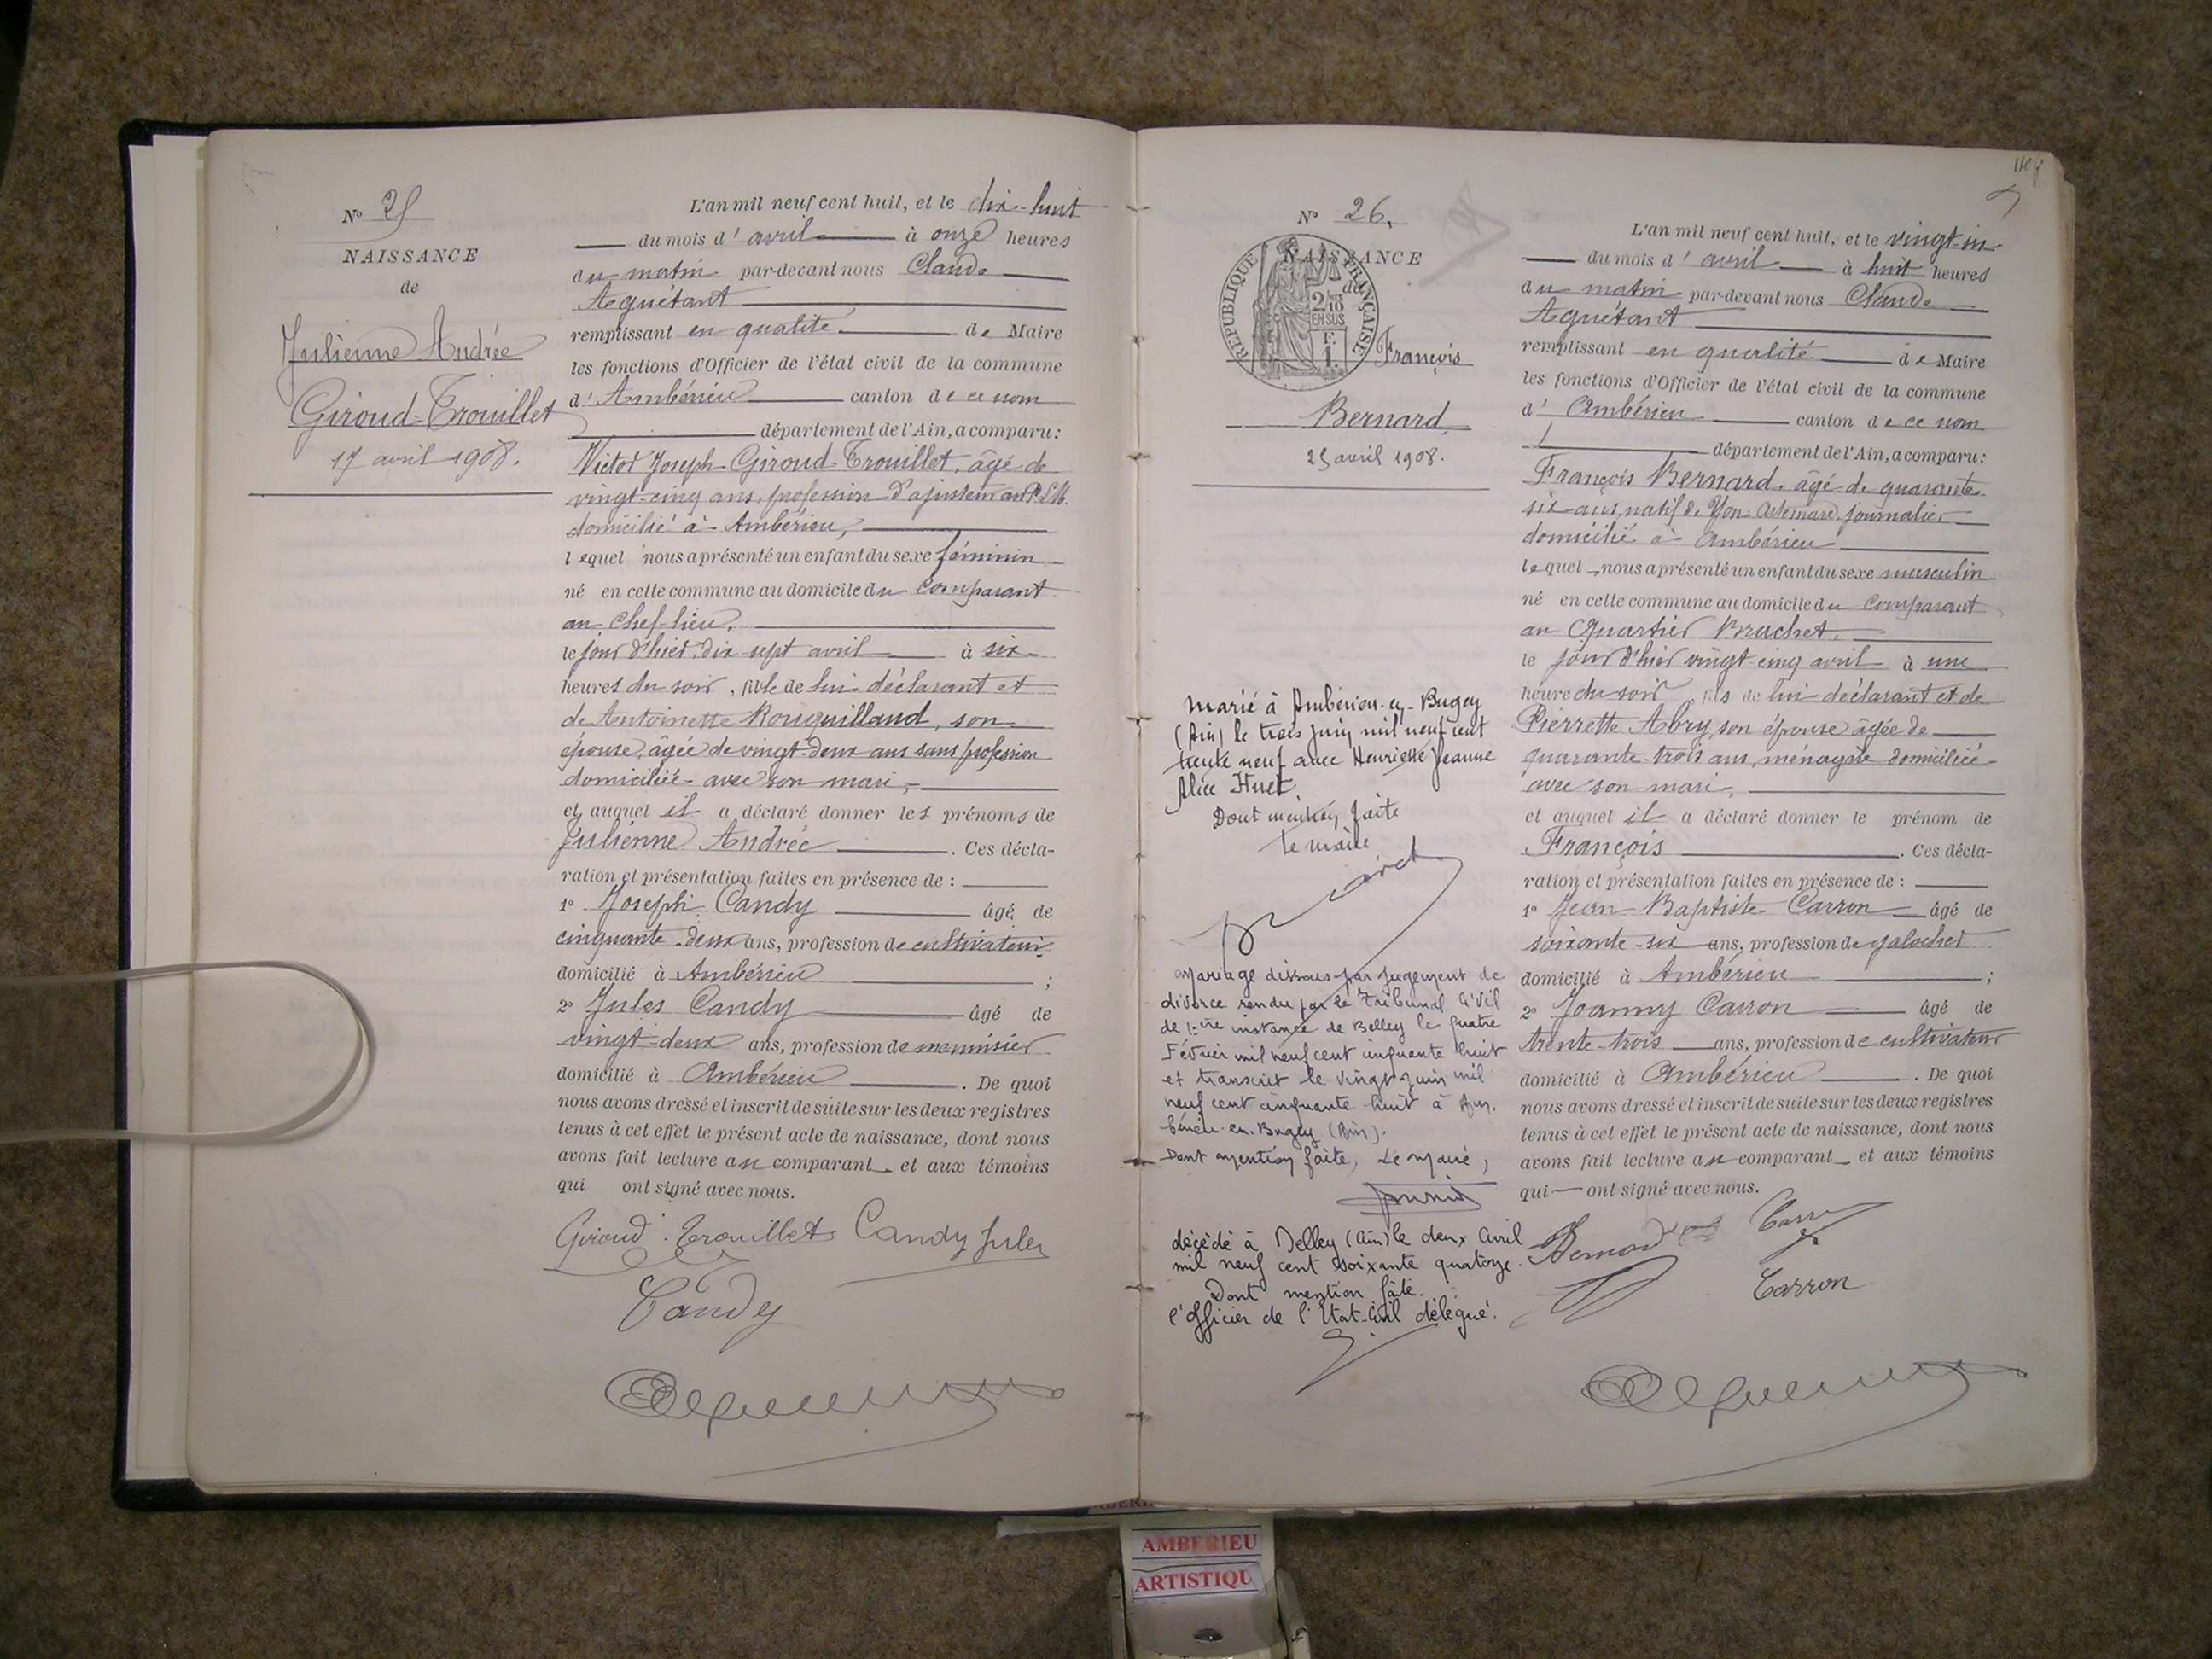 N° 25
NAISSANCE
de
Julienne Andrée
Giroud-Trouillet
17 avril 1908.
L'an mil neuf cent huit, et le dix-huit
du mois d'avril à onze heures
du matin par-devant nous Claude
Aguétant
remplissant en qualité de Maire
les fonctions d'Officier de l'état civil de la commune
d'Ambérieu canton de ce nom
département de l'Ain, a comparu:
Victor Joseph Giroud-Trouillet, âgé de
vingt-cinq ans, profession d'ajusteur au P.L.M.
domicilié à Ambérieu,
lequel nous a présenté un enfant du sexe féminin
né en cette commune au domicile du comparant
au Chef-lieu.
le jour d'hier dix sept avril à six
heures du soir, fille de lui déclarant et
de Antoinette Rouquillaud, son
épouse, âgée de vingt-deux ans sans profession
domiciliée avec son mari,
et auquel il a déclaré donner les prénoms de
Julienne Andrée. Ces décla-
ration et présentation faites en présence de :
1° Joseph Candy âgé de
cinquante-deux ans, profession de cultivateur
domicilié à Ambérieu ;
2° Jules Candy âgé de
vingt-deux ans, profession de menuisier
domicilié à Ambérieu. De quoi
nous avons dressé et inscrit de suite sur les deux registres
tenus à cet effet le présent acte de naissance, dont nous
avons fait lecture au comparant et aux témoins
qui ont signé avec nous.
Giroud-Trouillet Candy Jules
Candy
N° 26.
NAISSANCE
de
RÉPUBLIQUE FRANÇAISE
2/10
EN SUS
F.
1
François
Bernard
25 avril 1908.
marié à Ambérieu-en-Bugey
(Ain) le trois juin mil neuf cent
trente neuf avec Henriette Jeanne
Alice Huet
Dont mention faite
Le maire
Mariage dissous par jugement de
divorce rendu par le Tribunal Civil
de 1ère instance de Belley le quatre
Février mil neuf cent cinquante huit
et transcrit le vingt juin mil
neuf cent cinquante huit à Am-
bérieu-en-Bugey (Ain).
Dont mention faite, Le maire,
décédé à Belley (Ain) le deux Avril
mil neuf cent soixante quatorze.
Dont mention faite.
l'officier de l'Etat-Civil délégué.
L'an mil neuf cent huit, et le vingt-six
du mois d'avril à huit heures
du matin par-devant nous Claude
Aguétant
remplissant en qualité de Maire
les fonctions d'Officier de l'état civil de la commune
d'Ambérieu canton de ce nom
département de l'Ain, a comparu:
François Bernard, âgé de quarante-
six ans, natif de Yon-Artemare, journalier
domicilié à Ambérieu
lequel nous a présenté un enfant du sexe masculin
né en cette commune au domicile du comparant
au Quartier Brachet,
le jour d'hier vingt-cinq avril à une
heure du soir, fils de lui déclarant et de
Pierrette Abry son épouse âgée de
quarante-trois ans, ménagère domiciliée
avec son mari,
et auquel il a déclaré donner le prénom de
François. Ces décla-
ration et présentation faites en présence de :
1° Jean-Baptiste Carron âgé de
soixante-six ans, profession de galocher
domicilié à Ambérieu ;
2° Joanny Carron âgé de
trente-trois ans, profession de cultivateur
domicilié à Ambérieu. De quoi
nous avons dressé et inscrit de suite sur les deux registres
tenus à cet effet le présent acte de naissance, dont nous
avons fait lecture au comparant et aux témoins
qui ont signé avec nous.
Bernard
Carron
AMBERIEU
ARTISTIQU